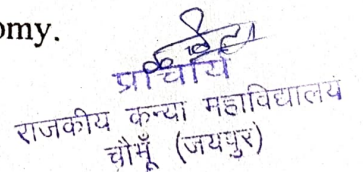 omy.
प्राचार्य
राजकीय कन्या महाविद्यालय
चौमूँ (जयपुर)